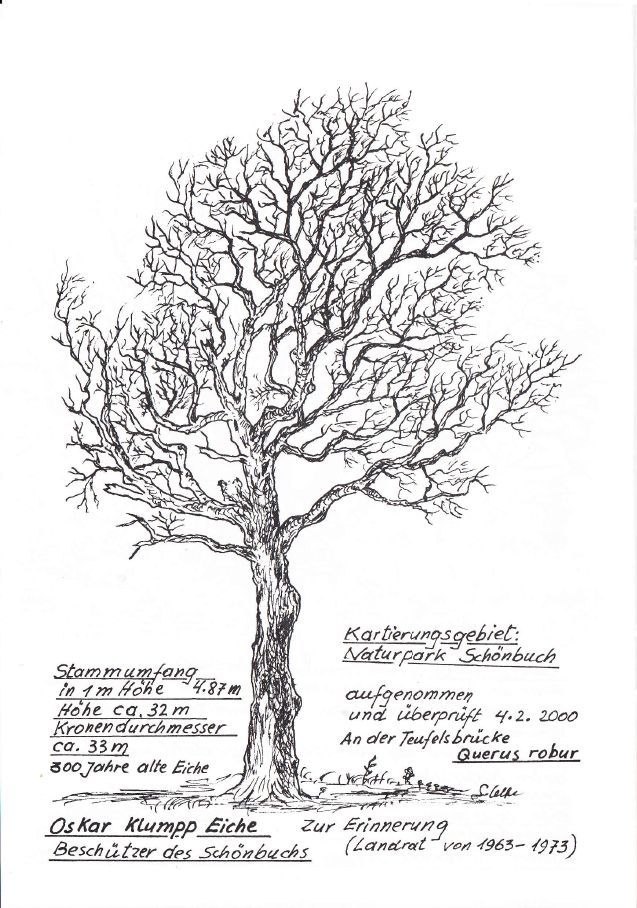 Kartierungsgebiet:
Naturpark Schönbuch
Stammumfang
in 1m Höhe 4.87m
Höhe ca. 32m
Kronendurchmesser
ca. 33m
300 Jahre alte Eiche
aufgenommen
und überprüft 4.2. 2000
An der Teufelsbrücke
Querus robur
Oskar Klumpp Eiche
Beschützer des Schönbuchs
Zur Erinnerung
(Landrat von 1963-1973)